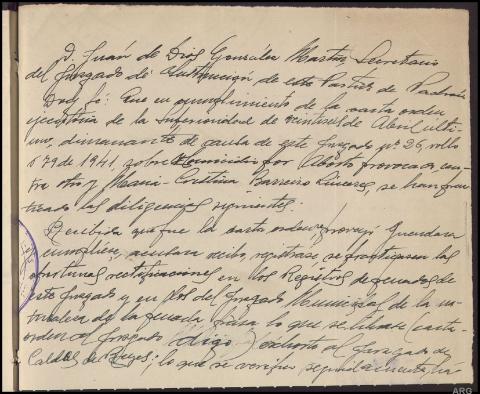 D. Juán de Dios González Martín, Secretario
del Juzgado de Instrucción de este Partido de Padrón
Doy fé: Que en cumplimiento de la carta orden
ejecutoria de la Superioridad de veintiseis de Abril últi-
mo, dimanante de causa de este Juzgado nº 36, rollo
579 de 1941, sobre Homicidio por Aborto provocado, con-
tra otro y Maria-Cristina Barreiro Linares, se han prac-
ticado las diligencias siguientes:
Recibida que fue la carta orden, proveyó guardara
cumpliera, acusara recibo, registrase, se practiquen las
oportunas rectificaciones en los Registros de penados de
este Juzgado y en los del Juzgado Municipal de la na-
turaleza de la penada, para lo que se librase (carta-
orden al Juzgado digo) exhorto al Juzgado de
Caldas de Reyes; lo que se verificó seguidamente, ha-
ARG